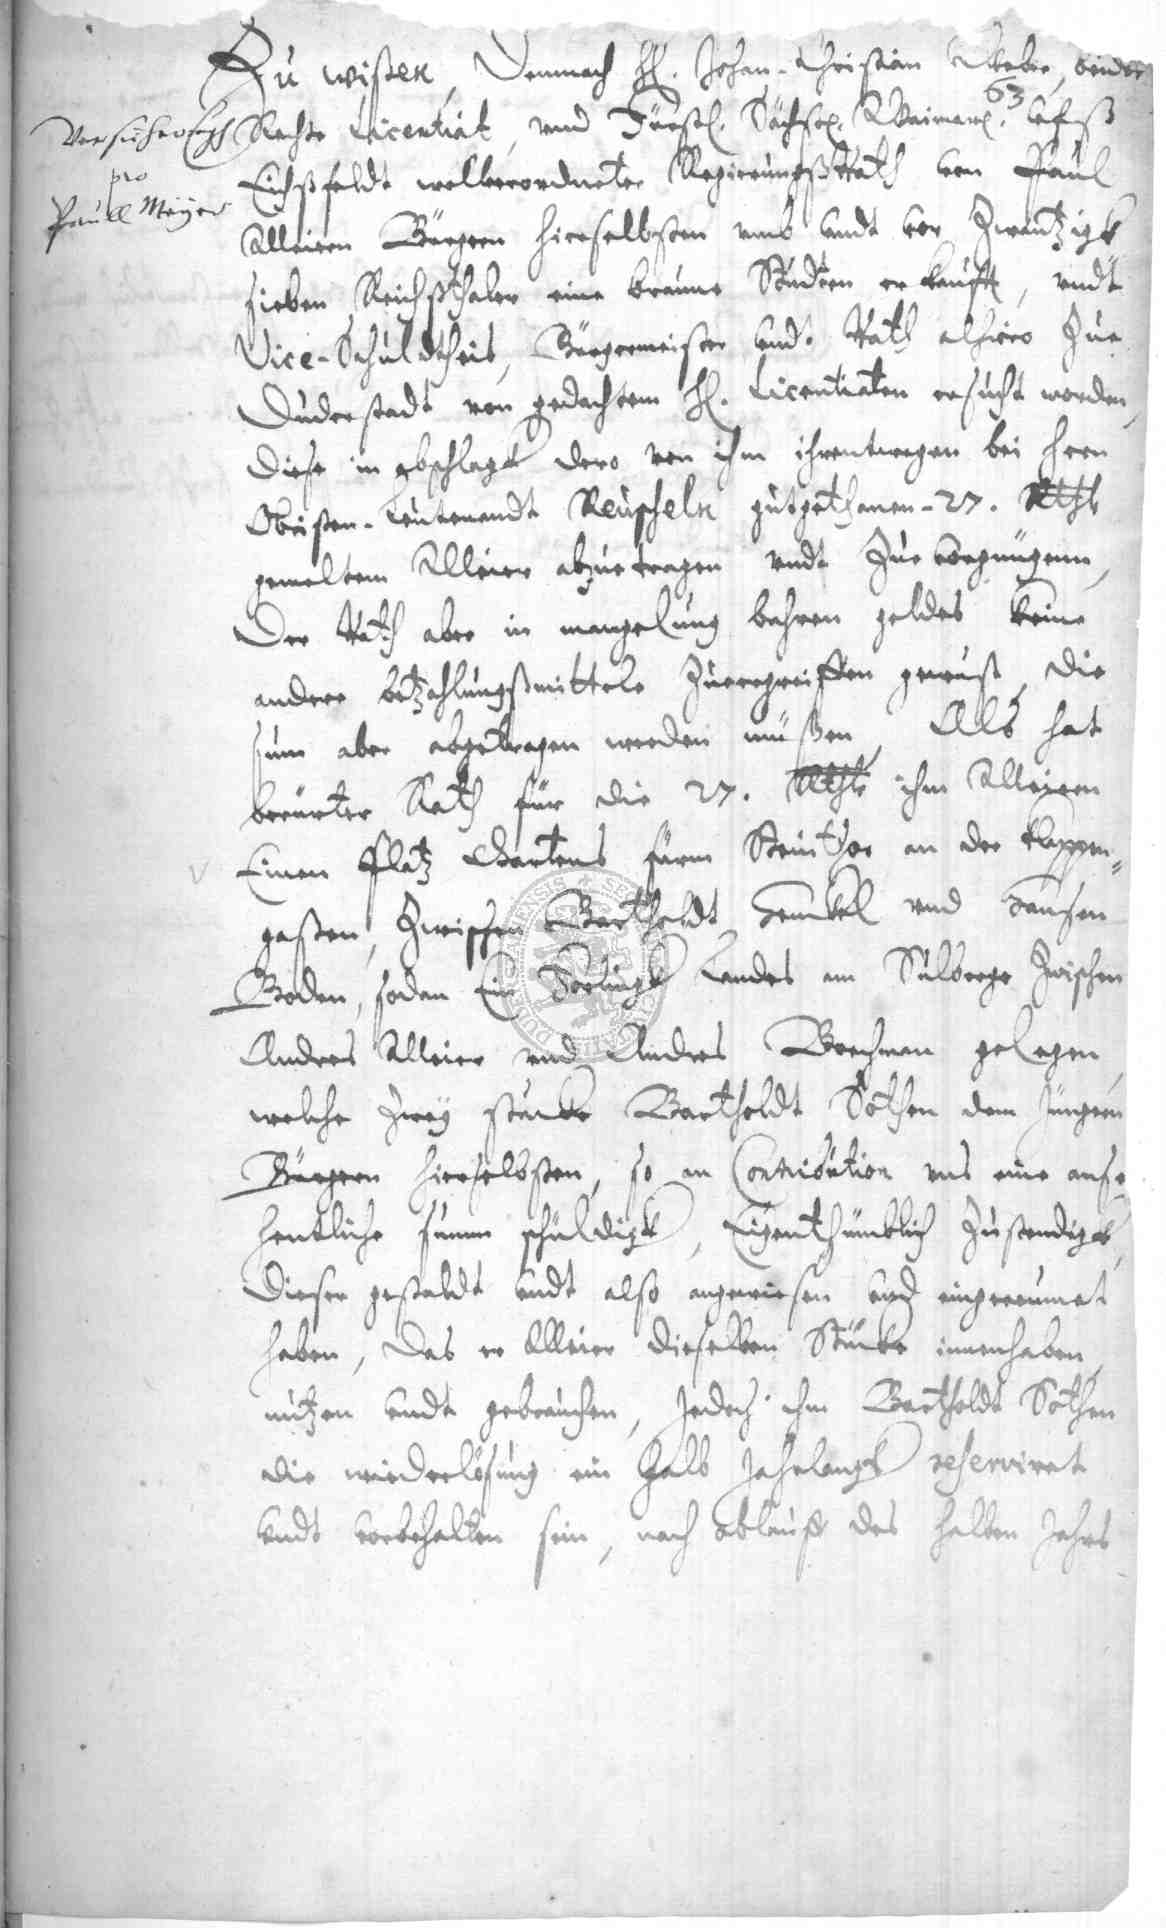 Zu wißen, Demnach H. Johan-Christian Weber, beider
63
Versicherungh
pro
Paull Meijer
Rechte Licentiat, und Fürstl. Sächsl. Waimarl. ufß
Eichßfeldt wolverordneter RegierungßRath von Paul
Meiern Bürgern hierselbsten umb undt vor Zwantzigk
sieben Reichßthaler eine braune Studten erkaufft, undt
Vice-Schuldtheis, Bürgermeister undt Rath alhiero Zue
Duderstadt von gedachtem H. Licentiaten ersucht worden,
diese in abschlagk dero von ihm ihrentwegen bei Hern
Obristen-Leutenandt Reuscheln gutgethanen-27. Rthlr
gemeltem Meier abzuetragen undt Zue vergnügenn,
Der Rath aber in mangelung bahren geldes keine
andere betzahlungßmittele Zueergreiffen gewust, die
sum aber abgetragen werden müßen, Als hat
berürter Rath für die 27. Rthlr ihm Meiern
Einen Platz Gartens fürm Steinthor an der Klappen-
gaßen, Zwischen Bartholdt Henckel und Hansen
Boden, sodan Ein Vorlingk Landes am Sulberge Zwischen
Andres Meier und Andres Borchman gelegen,
welche Zweÿ stücke Bartholdt Söthen dem Jüngern
Bürgern hierselbsten, so an Contribution uns eine anse-
hentliche summ schüldigk, Eigenthümblich Zustendigk,
Dieser gestaldt undt also angewiesen und eingereumet
haben, Das er Meier dieselben Stücke innenhaben,
nutzen undt gebrauchen, Jedoch ihm Bartholdt Söthen
die wiederlösung ein halb Jahrlangk reserviret
undt vorbehalten sein, nach ablauff des halben Jahrs